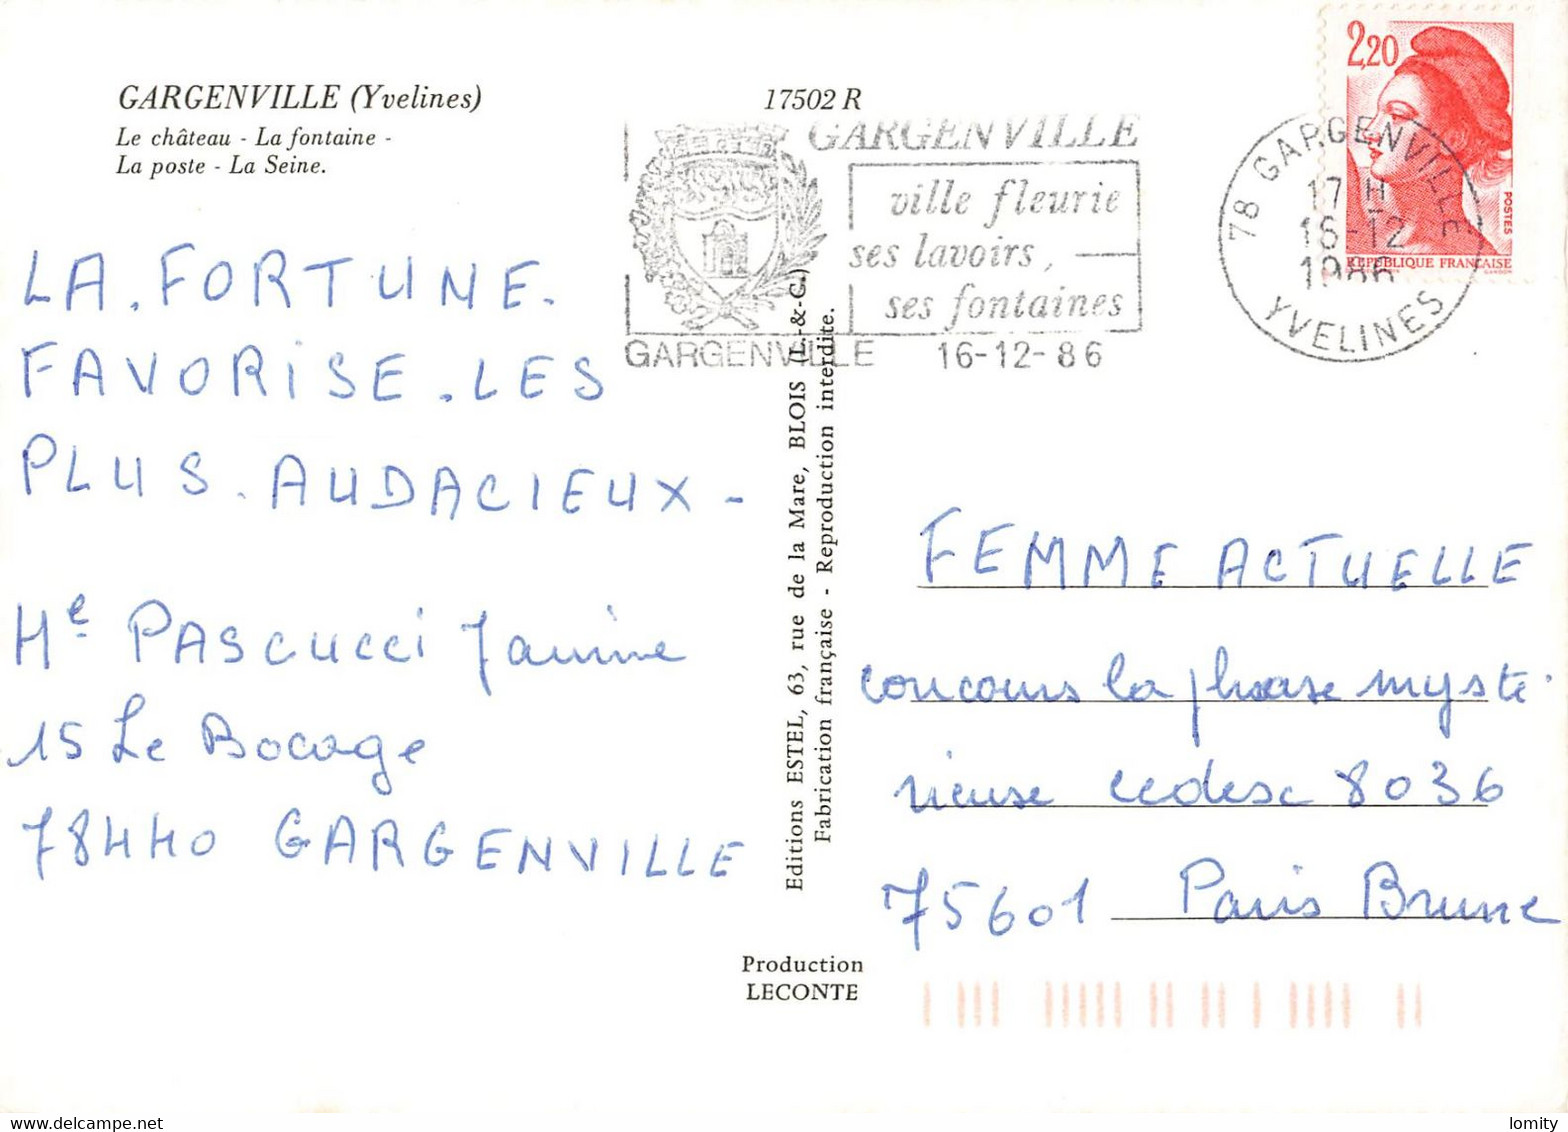 GARGENVILLE (Yvelines)
Le château - La fontaine -
La poste - La Seine.
17502 R
GARGENVILLE
ville fleurie
ses lavoirs,
ses fontaines
GARGENVILLE 16-12-86
78 GARGENVILLE
17 H
16-12
1986
YVELINES
2,20
POSTES
REPUBLIQUE FRANÇAISE
LA. FORTUNE.
FAVORISE. LES
PLUS. AUDACIEUX -
Me PASCUCCI Janine
15 Le Bocage
78440 GARGENVILLE
Editions ESTEL, 63, rue de la Mare, BLOIS (L.-&-C.)
Fabrication française - Reproduction interdite.
Production
LECONTE
FEMME ACTUELLE
concours la phrase mysté
rieuse cedesc 8036
75601 Paris Brune
lomity